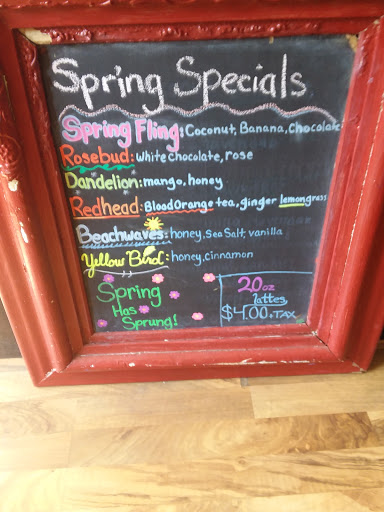 Spring Specials
Spring Fling: Coconut, Banana, Chocolate
Rosebud: white chocolate, rose
Dandelion: mango, honey
Redhead: Blood Orange tea, ginger lemongrass
Beachwaves: honey, Sea Salt, vanilla
Yellow Bird: honey, cinnamon
Spring
Has
Sprung!
20oz
lattes
$4.00+TAX